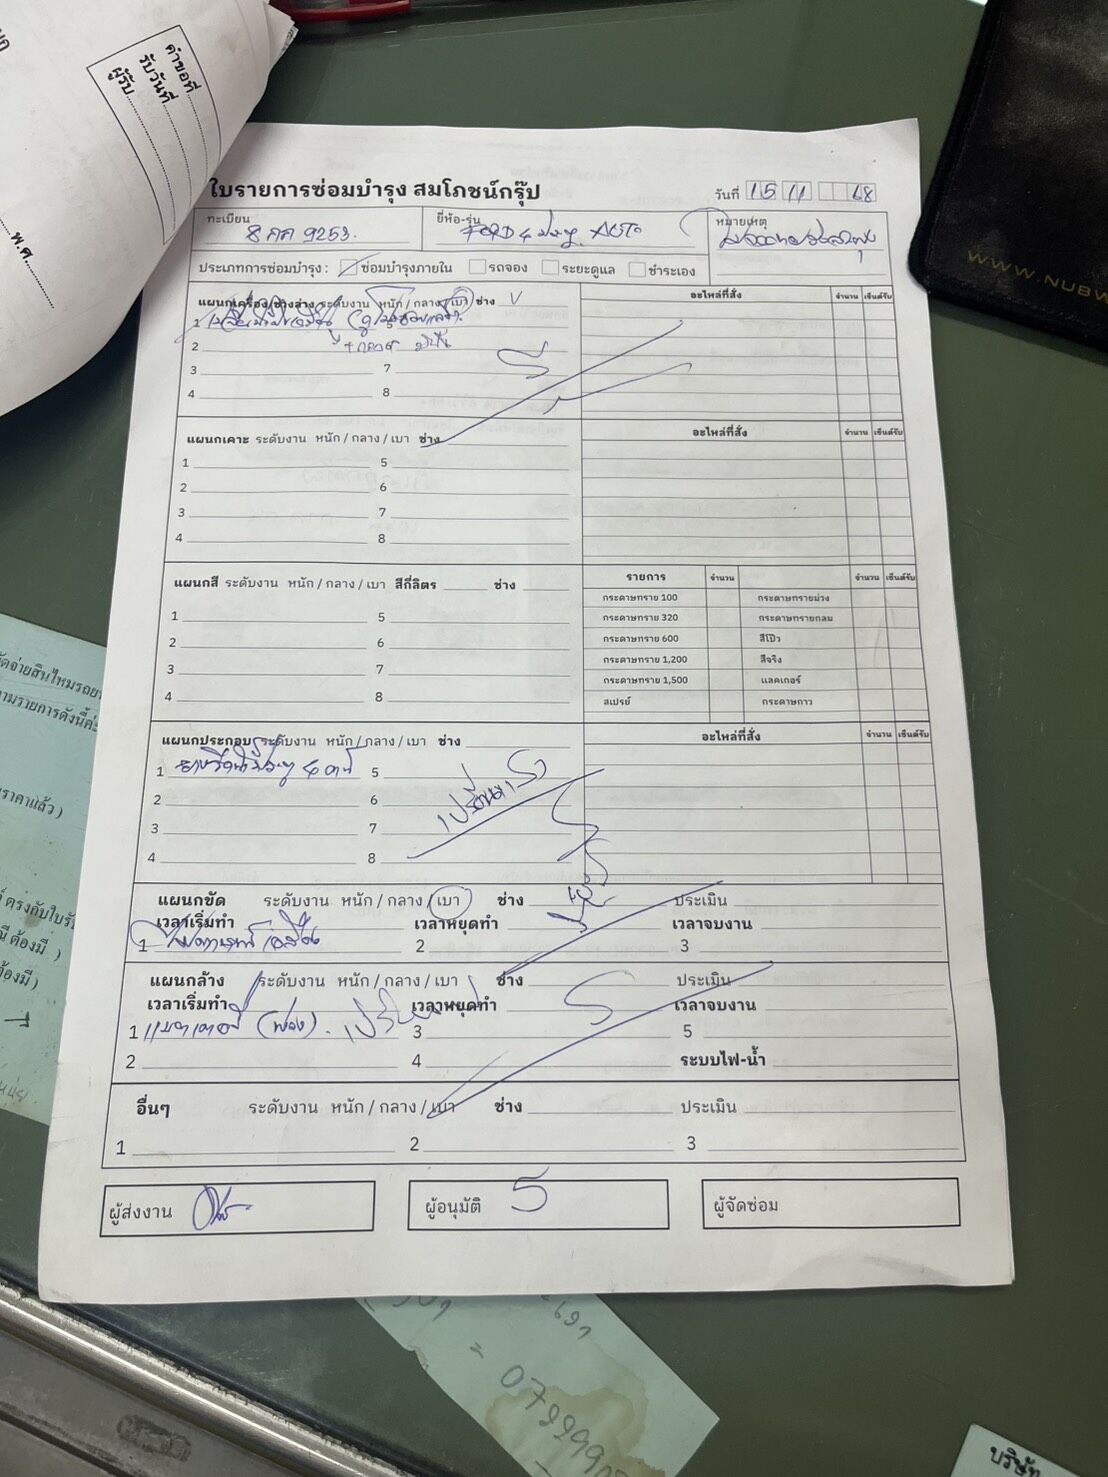 คำขอที่
รับวันที่
ผู้รับ
พ.ศ.
WWW.NUBW
ใบรายการซ่อมบำรุง สมโภชน์กรุ๊ป
วันที่ 15 11 68
ทะเบียน ยี่ห้อ-รุ่น หมายเหตุ
8 กค 9253. FORD 4 ประตู. AUTO
ประเภทการซ่อมบำรุง : ซ่อมบำรุงภายใน รถจอง ระยะดูแล ชำระเอง
แผนกเครื่อง/ช่วงล่าง ระดับงาน หนัก / กลาง / เบา ช่าง อะไหล่ที่สั่ง จำนวน เซ็นต์รับ
1
2
3 7
4 8
แผนกเคาะ ระดับงาน หนัก / กลาง / เบา ช่าง อะไหล่ที่สั่ง จำนวน เซ็นต์รับ
1 5
2 6
3 7
4 8
แผนกสี ระดับงาน หนัก / กลาง / เบา สีกี่ลิตร ช่าง รายการ จำนวน จำนวน เซ็นต์รับ
กระดาษทราย 100 กระดาษทรายม่วง
1 5 กระดาษทราย 320 กระดาษทรายกลม
2 6 กระดาษทราย 600 สีโป๊ว
3 7 กระดาษทราย 1,200 สีจริง
กระดาษทราย 1,500 แลคเกอร์
4 8 สเปรย์ กระดาษกาว
แผนกประกอบ ระดับงาน หนัก / กลาง / เบา ช่าง อะไหล่ที่สั่ง จำนวน เซ็นต์รับ
1 ยางรีดน้ำประตู 4 บาน 5
2 6
3 7
4 8
แผนกขัด ระดับงาน หนัก / กลาง / เบา ช่าง ประเมิน
เวลาเริ่มทำ เวลาหยุดทำ เวลาจบงาน
1 2 3
แผนกล้าง ระดับงาน หนัก / กลาง / เบา ช่าง ประเมิน
เวลาเริ่มทำ เวลาหยุดทำ เวลาจบงาน
1 แบตเตอรี่ 3 5
2 4 ระบบไฟ-น้ำ
อื่นๆ ระดับงาน หนัก / กลาง / เบา ช่าง ประเมิน
1 2 3
ผู้ส่งงาน ผู้อนุมัติ ผู้จัดซ่อม
ามรายการดังนี้ค่ะ
ราคาแล้ว )
ตรงกับใบรับ
ณี ต้องมี )
ต้องมี )
บริษัท